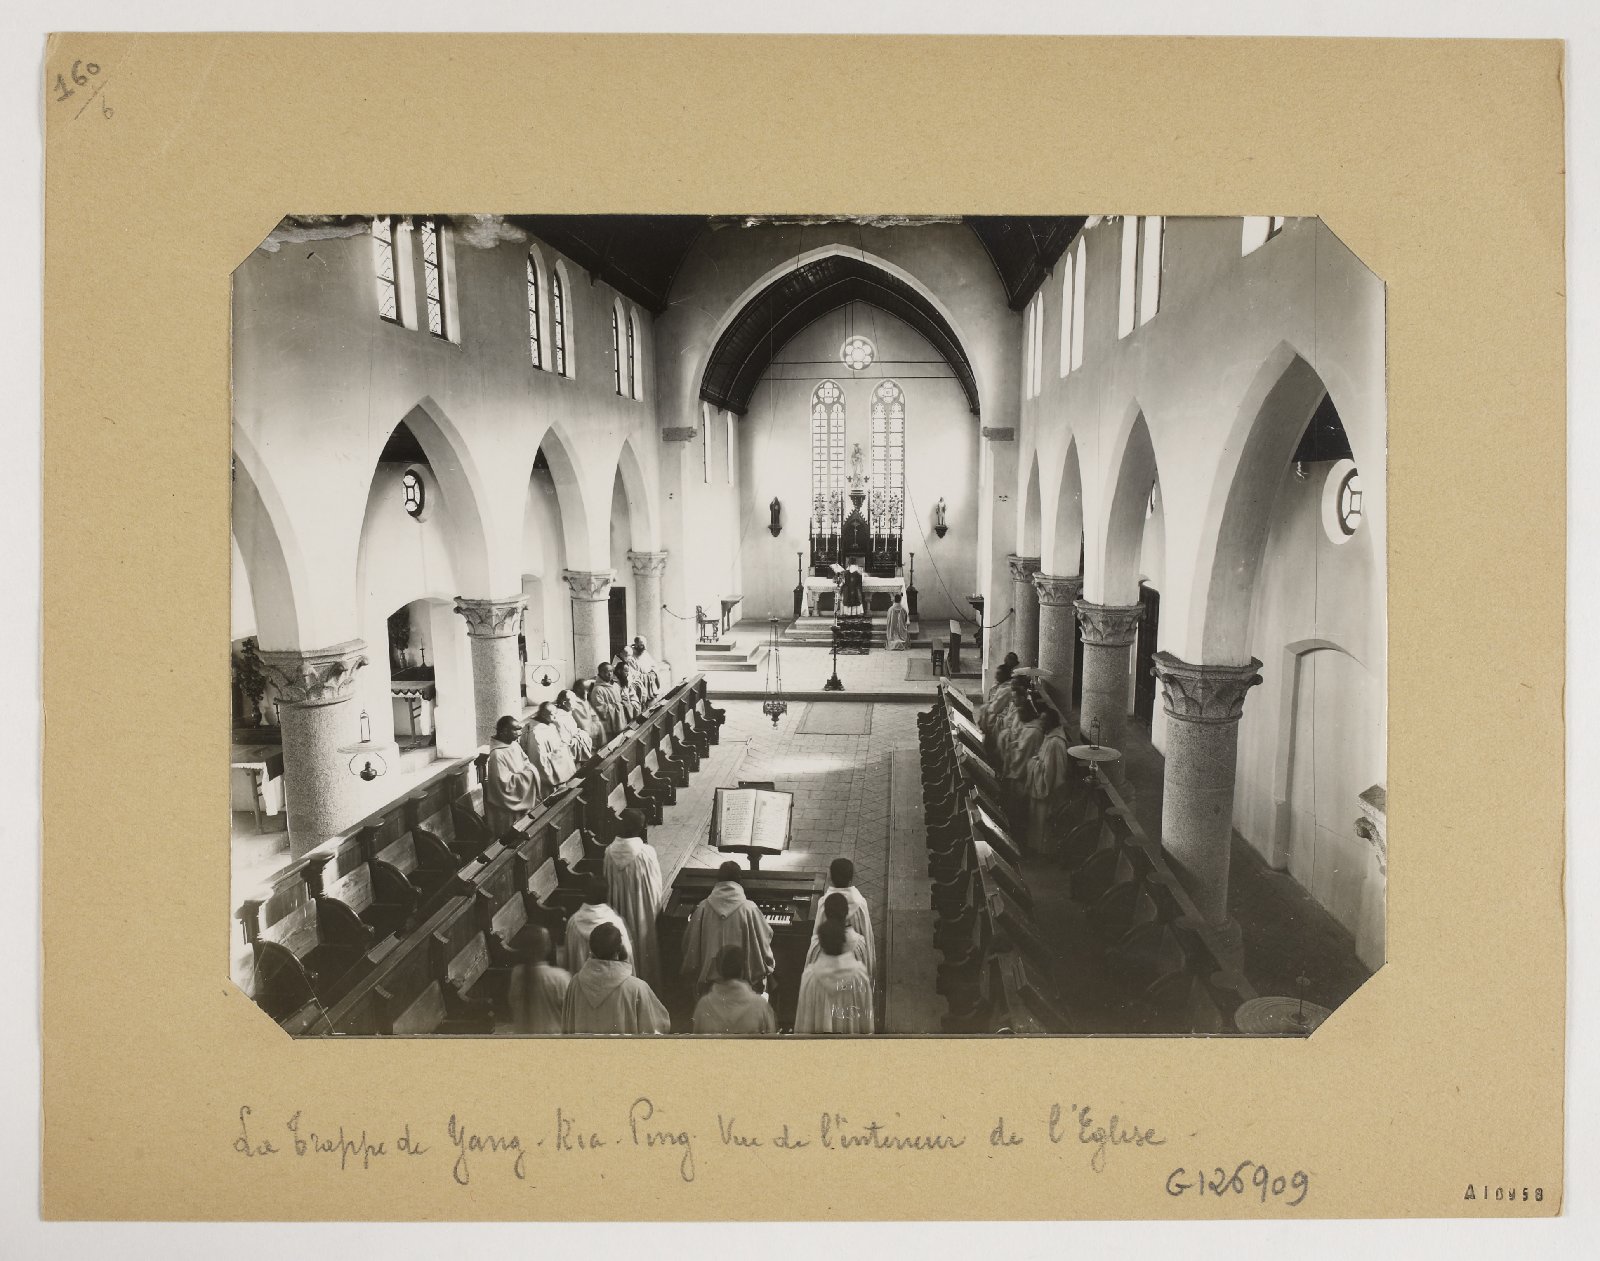 160/6
La Trappe de Yang-Kia-Ping. Vue de l'intérieur de l'Eglise -
G126909
A10958